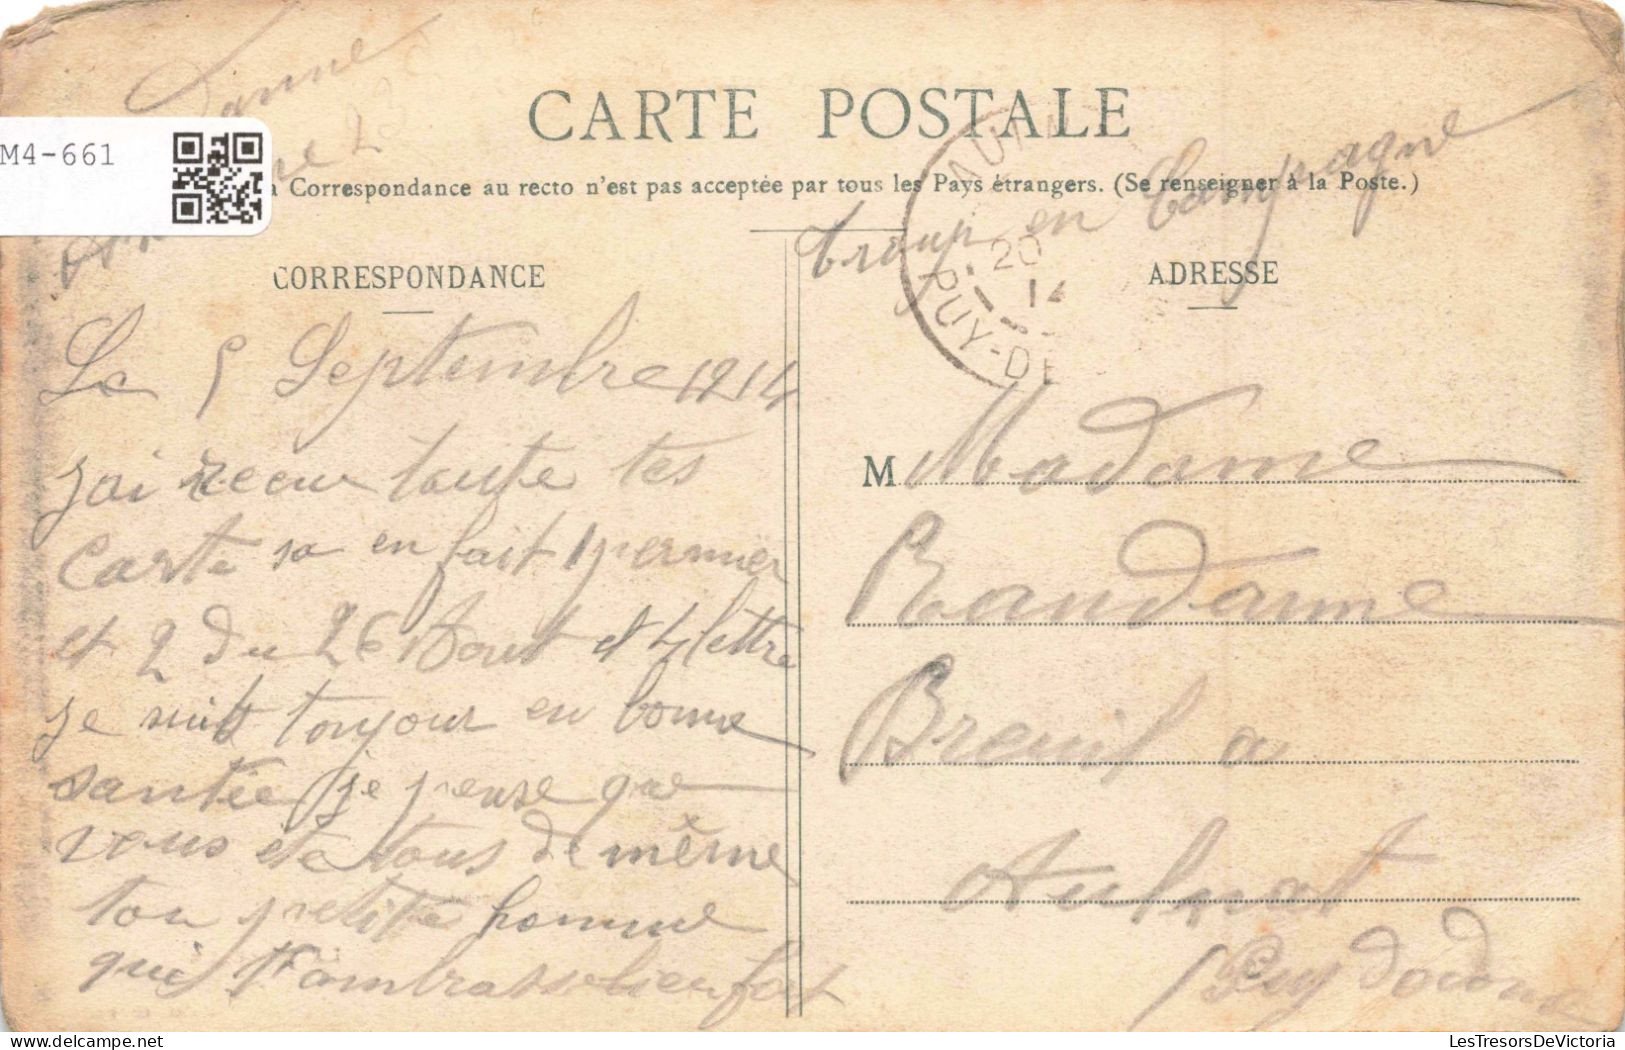 anne
M4-661
CARTE POSTALE
Correspondance au recto n'est pas acceptée par tous les Pays étrangers. (Se renseigner à la Poste.)
troup en Campagne
20
14
PUY-DE
CORRESPONDANCE
ADRESSE
Le 5 Septembre 1914
jai recu toute tes
Carte sa en fait 1 permier
et 2 du 26 Aout et 4 lettre
je suit toujour en bonne
santée je pense que
vous ete tous de même
ton petite homme
qui t'ambrasse bien fort
M Madame
Randanne
Breuil a
Aulnat
Puy de dome
LesTresorsDeVictoria